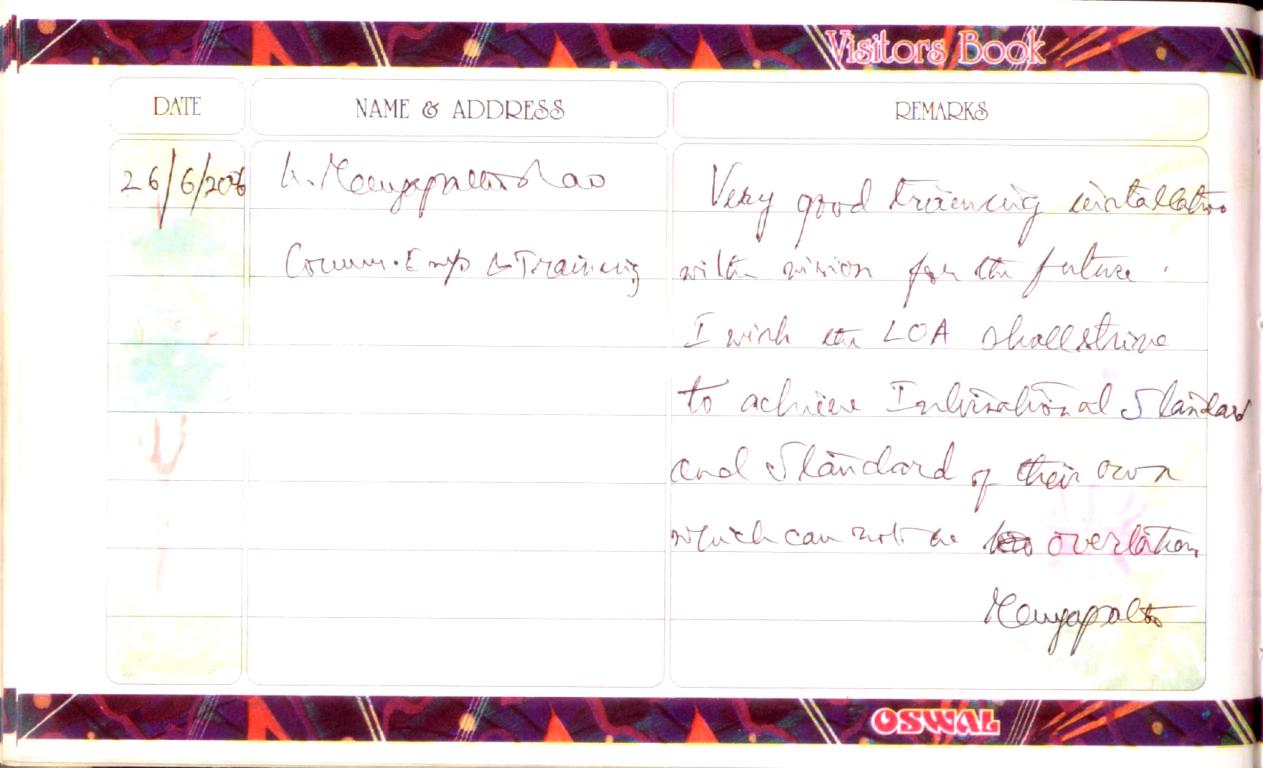 Visitors Book
DATE NAME & ADDRESS REMARKS
26/6/2006
Very good training installation
Comm. Emp & Training with vision for the future.
I wish the LOA shall strive
to achieve International Standard
and Standard of their own
which can not be overtaken
OSWAL